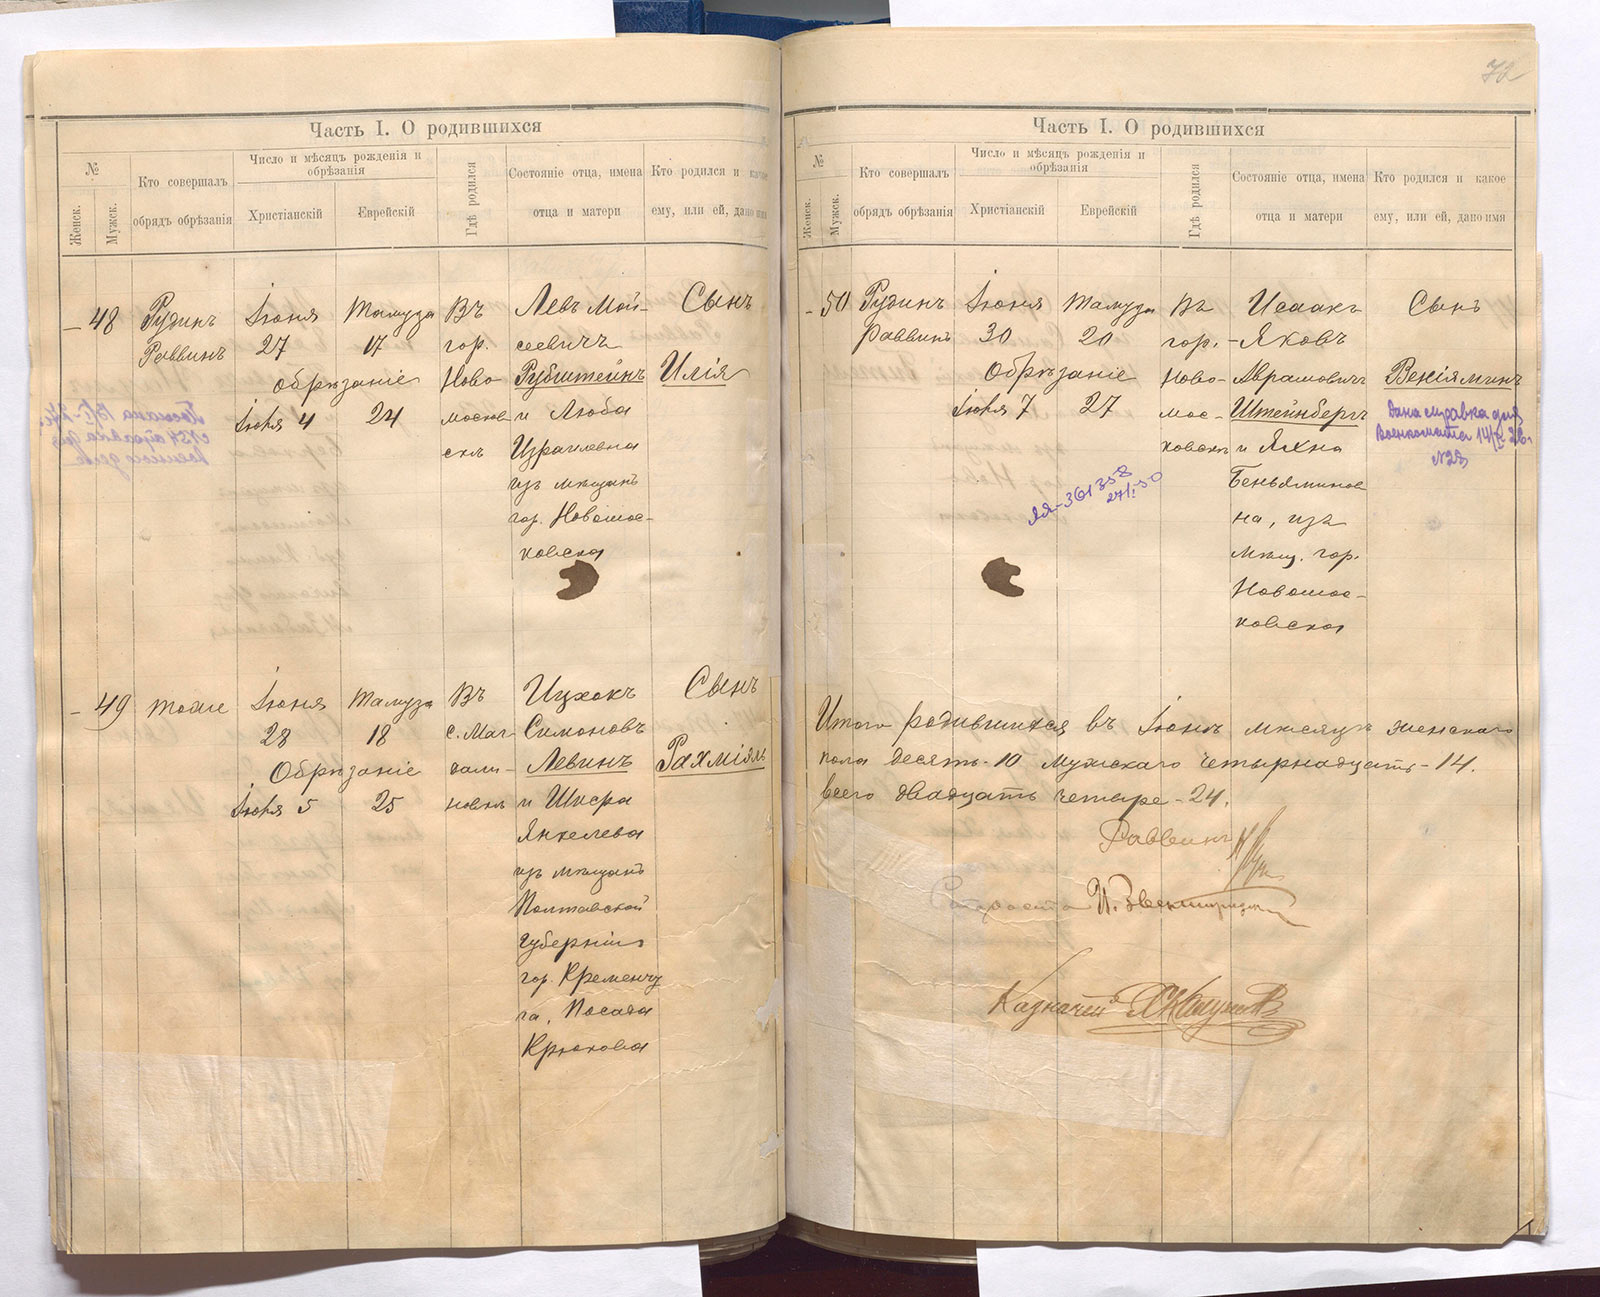 Часть I. О родившихся
№
Женск.
Мужск.
Кто совершалъ
обрядъ обрѣзанія
Число и мѣсяцъ рожденія и
обрѣзанія
Христіанскій
Еврейскій
Гдѣ родился
Состояніе отца, имена
отца и матери
Кто родился и какое
ему, или ей, дано имя
– 48
Рудинъ
Раввинъ
Іюня
27
Обрѣзаніе
Іюля 4
Тамуза
17
24
Въ
гор.
Ново-
москов
скѣ
Левъ Мой-
сеевичъ
Рубштейнъ
и Люба
Израилевна
изъ мѣщанъ
гор. Новомос-
ковска
Сынъ
Илія
– 49
тоже
Іюня
28
Обрѣзаніе
Іюля 5
Тамуза
18
25
Въ
с. Маг
дали-
новкѣ
Ицхокъ
Симоновъ
Левинъ
и Шифра
Янкелева
изъ мѣщанъ
Полтавской
губерніи
гор. Кременчу
га, Посада
Крюкова
Сынъ
Рахміяль
72
Часть I. О родившихся
№
Женск.
Мужск.
Кто совершалъ
обрядъ обрѣзанія
Число и мѣсяцъ рожденія и
обрѣзанія
Христіанскій
Еврейскій
Гдѣ родился
Состояніе отца, имена
отца и матери
Кто родился и какое
ему, или ей, дано имя
- 50
Рудинъ
Раввинъ
Іюня
30
Обрѣзаніе
Іюля 7
Тамуза
20
27
Въ
гор.
Ново-
мос-
ковскѣ
Исаакъ
-Яковъ
Аврамовичъ
Штейнбергъ
и Яхна
Беньяминов
на, изъ
мѣщ. гор.
Новомос-
ковска
Сынъ
Веніяминъ
Дана справка для
Военкомата
ЯЯ-361358
Итого родившихся въ Іюнѣ мѣсяцѣ женскаго
пола десять-10 мужскаго четырнадцать-14.
всего двадцать четыре-24.
Раввинъ
Староста
Казначей